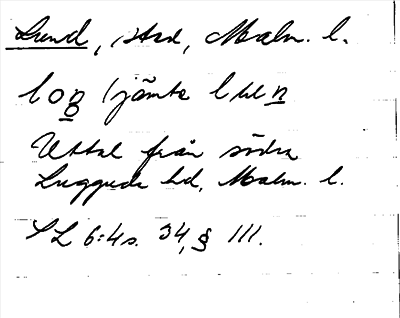 Lund, stad, Malm. l.
l o n (jämte l till n
Uttal från södra
Luggude hd, Malm. l.
SL 6:4 s. 34, § 111.